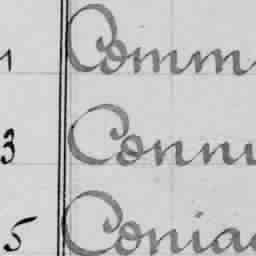 1 Comm
3 Conn
5 Conia